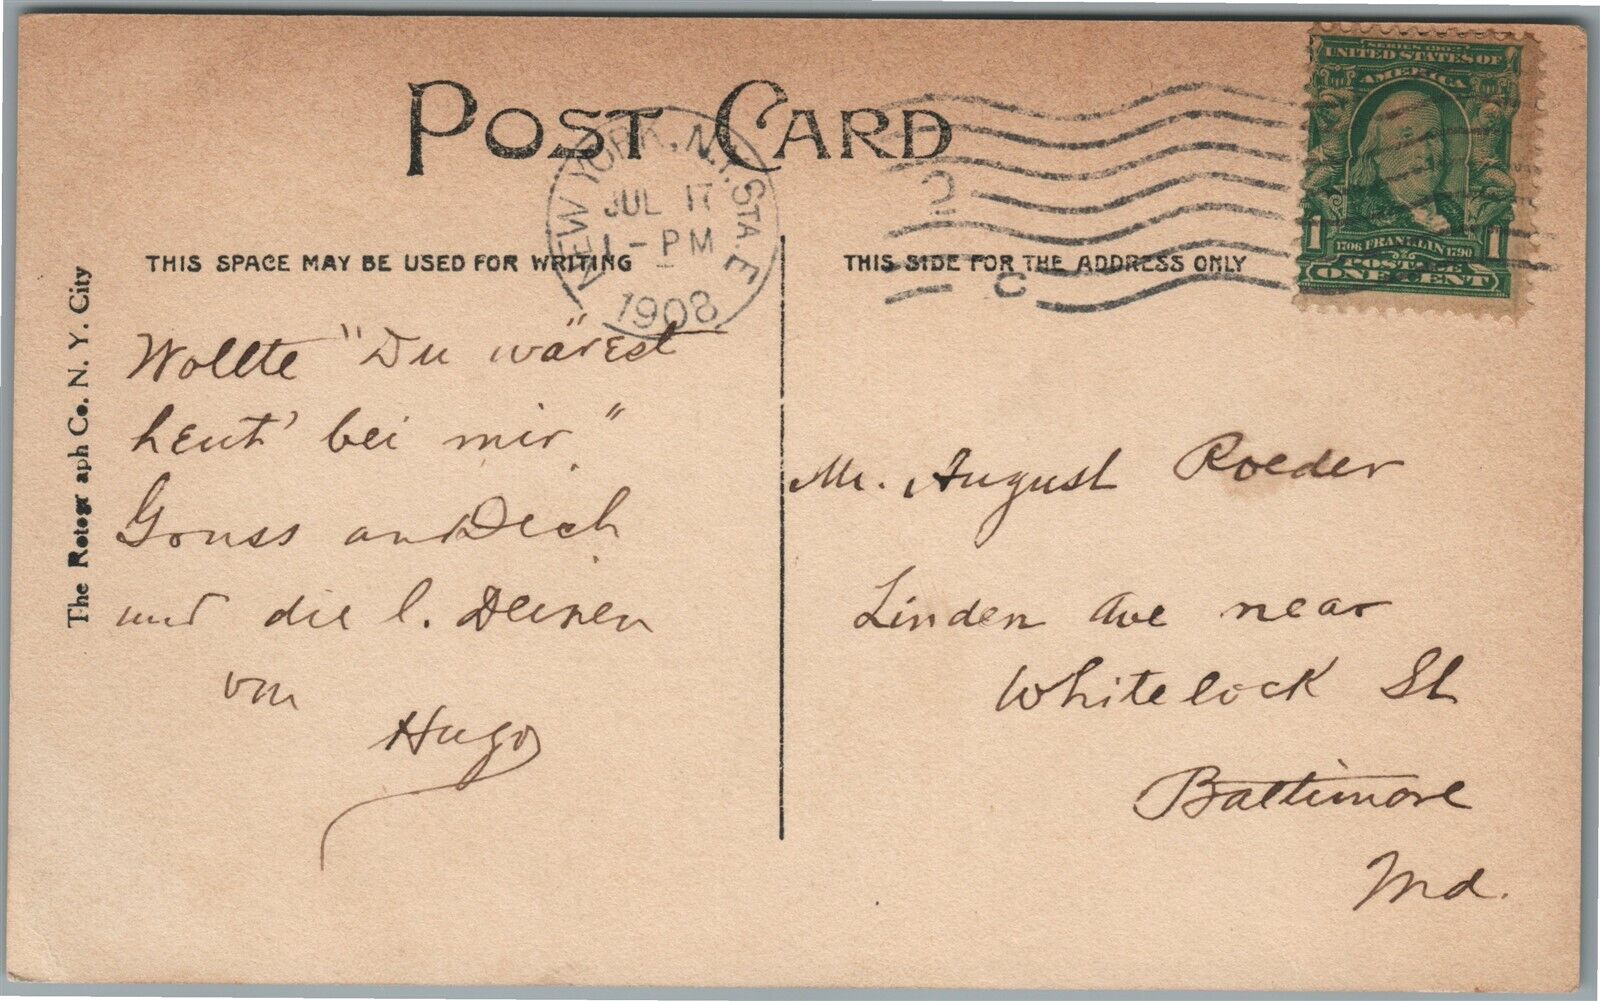 POST CARD
NEW YORK, N.Y. STA. E
JUL 17
1 - PM
1908
SERIES 1902
UNITED STATES OF
AMERICA
1706 FRANKLIN 1790
1 1
POSTAGE
ONE CENT
THIS SPACE MAY BE USED FOR WRITING
THIS SIDE FOR THE ADDRESS ONLY
The Rotograph Co. N. Y. City
Wollte "Du wärest
heut' bei mir"
Gruss an Dich
und die l. Deinen
von
Hugo
Mr. August Roeder
Linden Ave near
Whitelock St
Baltimore
Md.